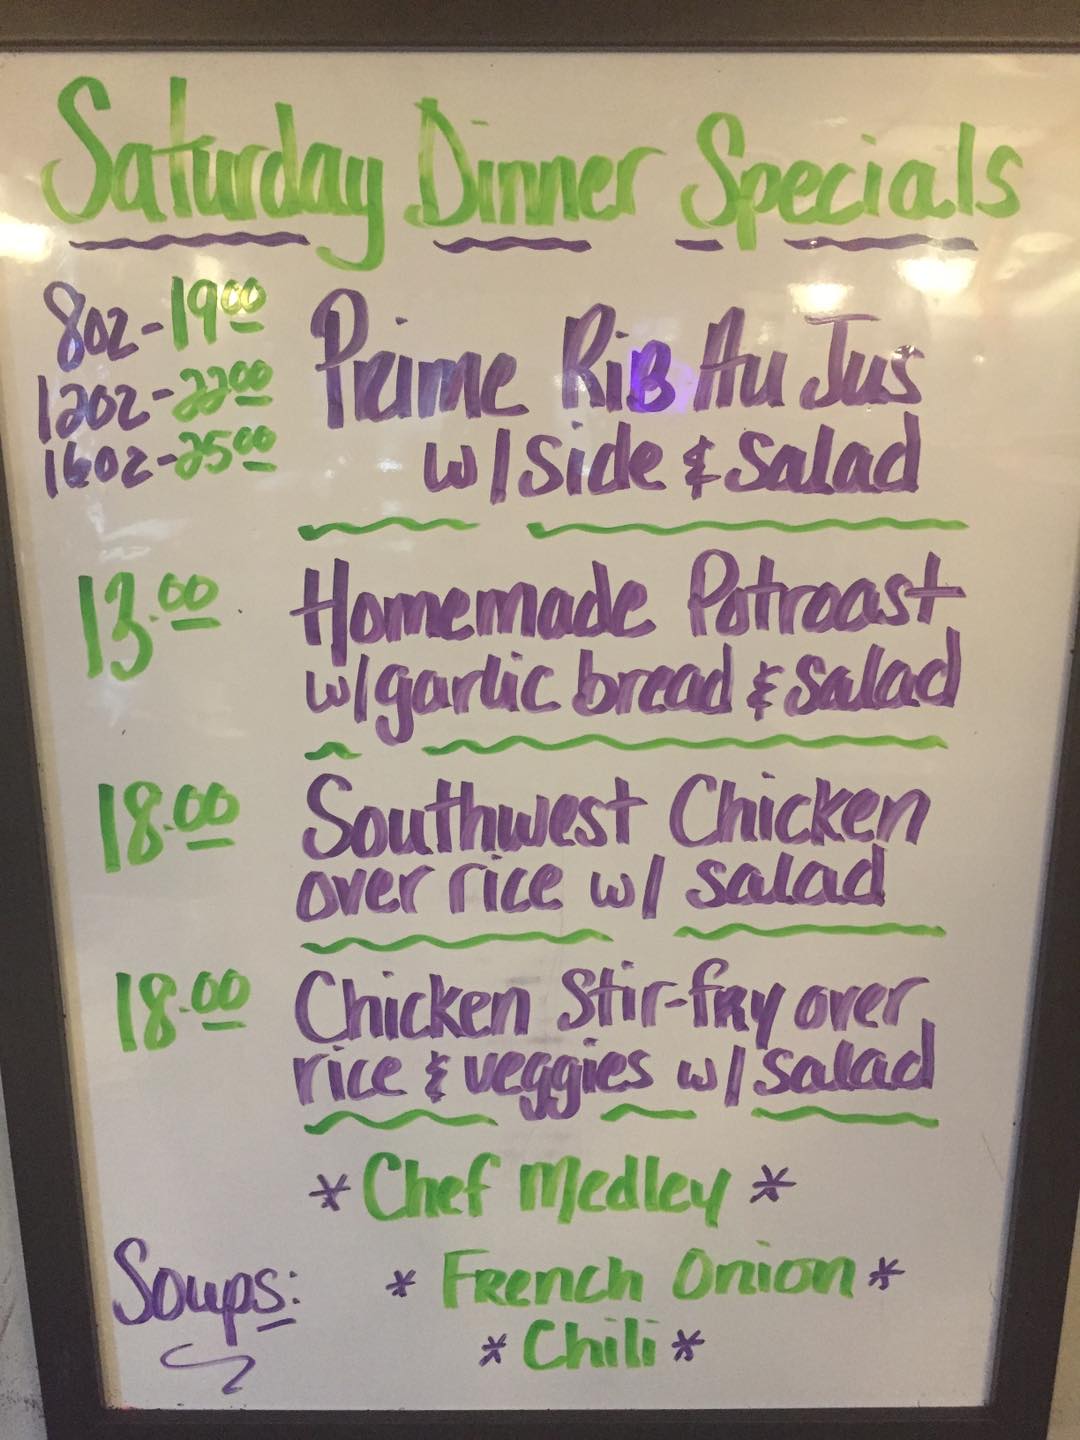 Saturday Dinner Specials
8oz-19.00
12oz-22.00
16oz-25.00
Prime Rib Au Jus
w/side & Salad
13.00 Homemade Potroast
w/garlic bread & Salad
18.00 Southwest Chicken
over rice w/ salad
18.00 Chicken Stir-fry over
rice & veggies w/ salad
*Chef Medley*
Soups: *French Onion*
*Chili*